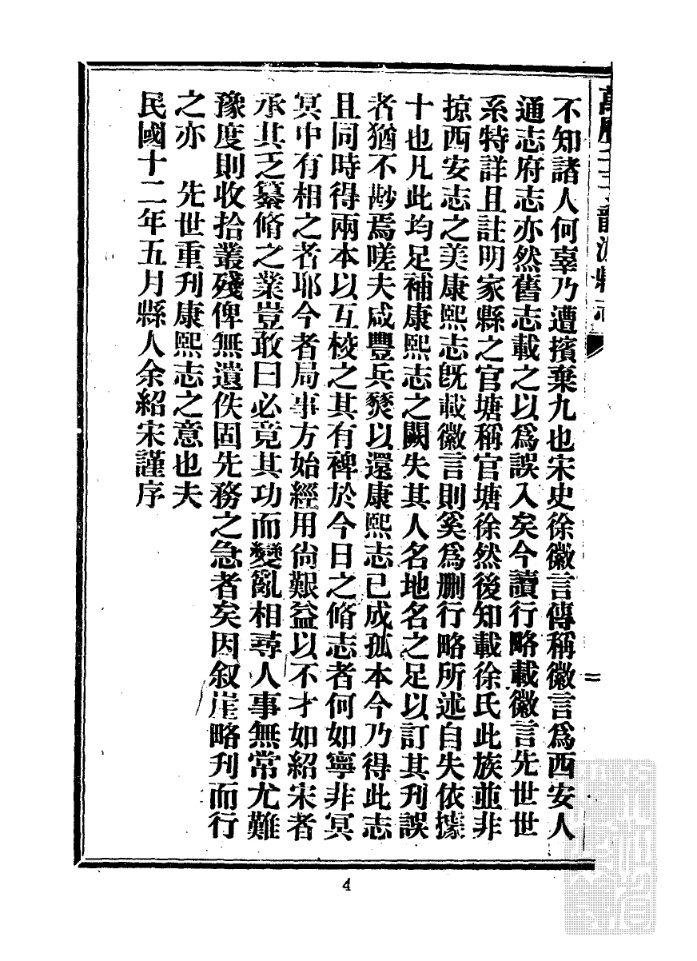 不知諸人何辜乃遭擯棄九也宋史徐徽言傳稱徽言爲西安人
通志府志亦然舊志載之以爲誤入矣今讀行略載徽言先世世
系特詳且註明家縣之官塘稱官塘徐然後知載徐氏此族並非
掠西安志之美康熙志旣載徽言則奚爲删行略所述自失依據
十也凡此均足補康熙志之闕失其人名地名之足以訂其刋誤
者猶不尠焉嗟夫咸豐兵燹以還康熙志已成孤本今乃得此志
且同時得兩本以互校之其有裨於今日之脩志者何如寧非冥
冥中有相之者耶今者局事方始經用尙艱益以不才如紹宋者
承其乏纂脩之業豈敢曰必竟其功而變亂相尋人事無常尤難
豫度則收拾叢殘俾無遺佚固先務之急者矣因叙崖略刋而行
之亦 先世重刋康熙志之意也夫
民國十二年五月縣人余紹宋謹序
二
4